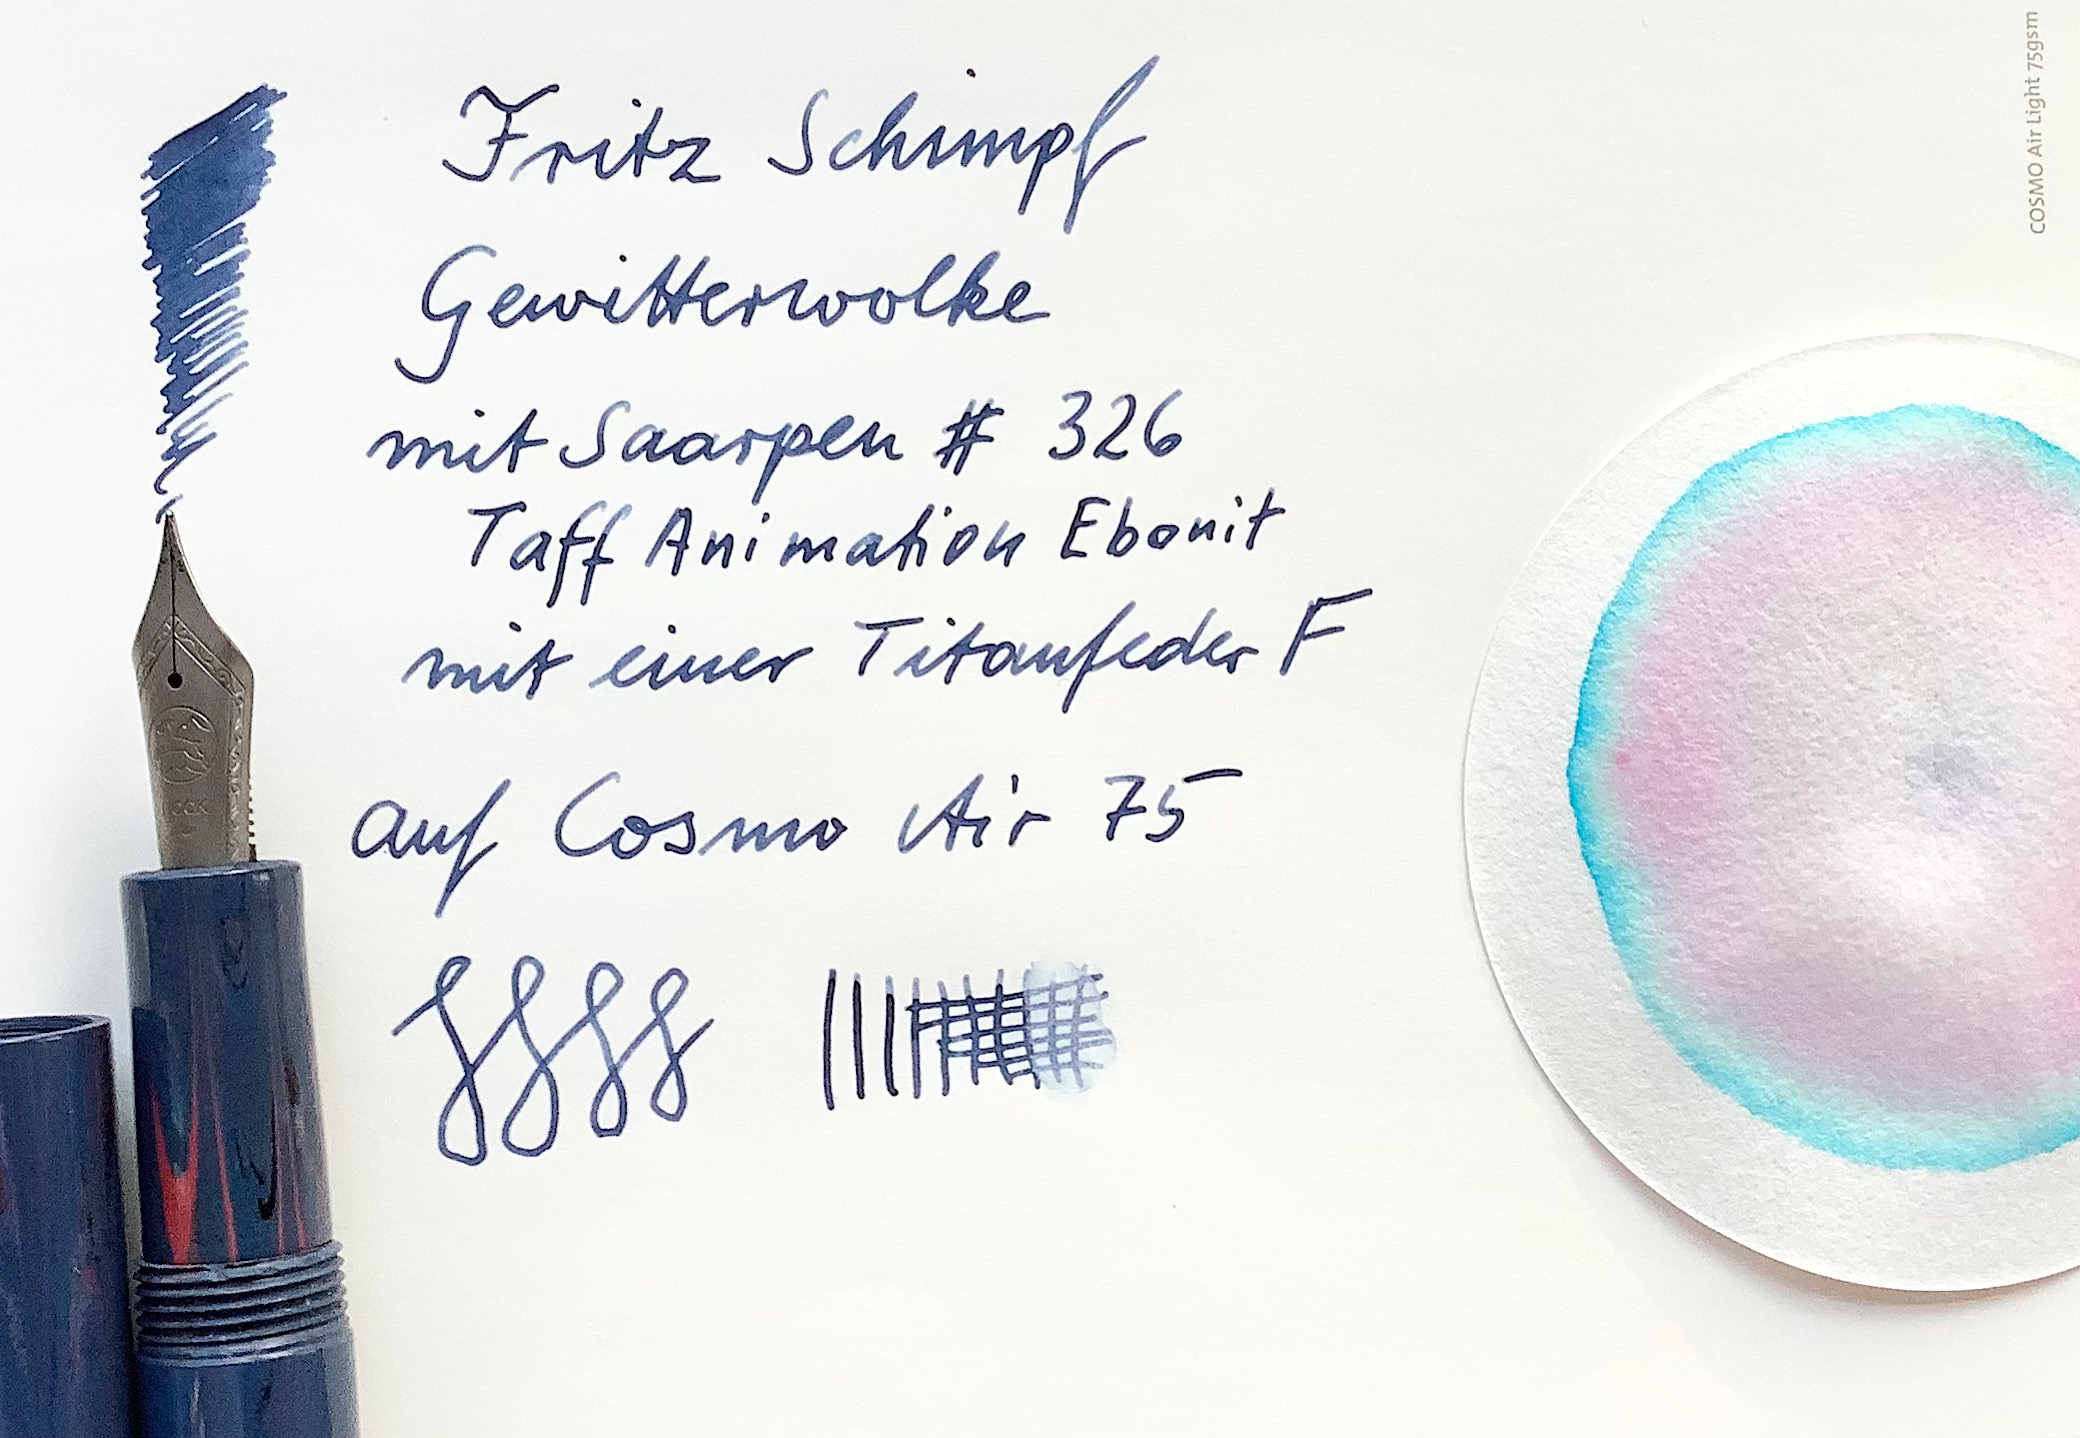 Fritz Schimpf
Gewitterwolke
mit Saarpen # 326
Taff Animation Ebonit
mit einer Titanfeder F
auf Cosmo Air 75
COSMO Air Light 75gsm